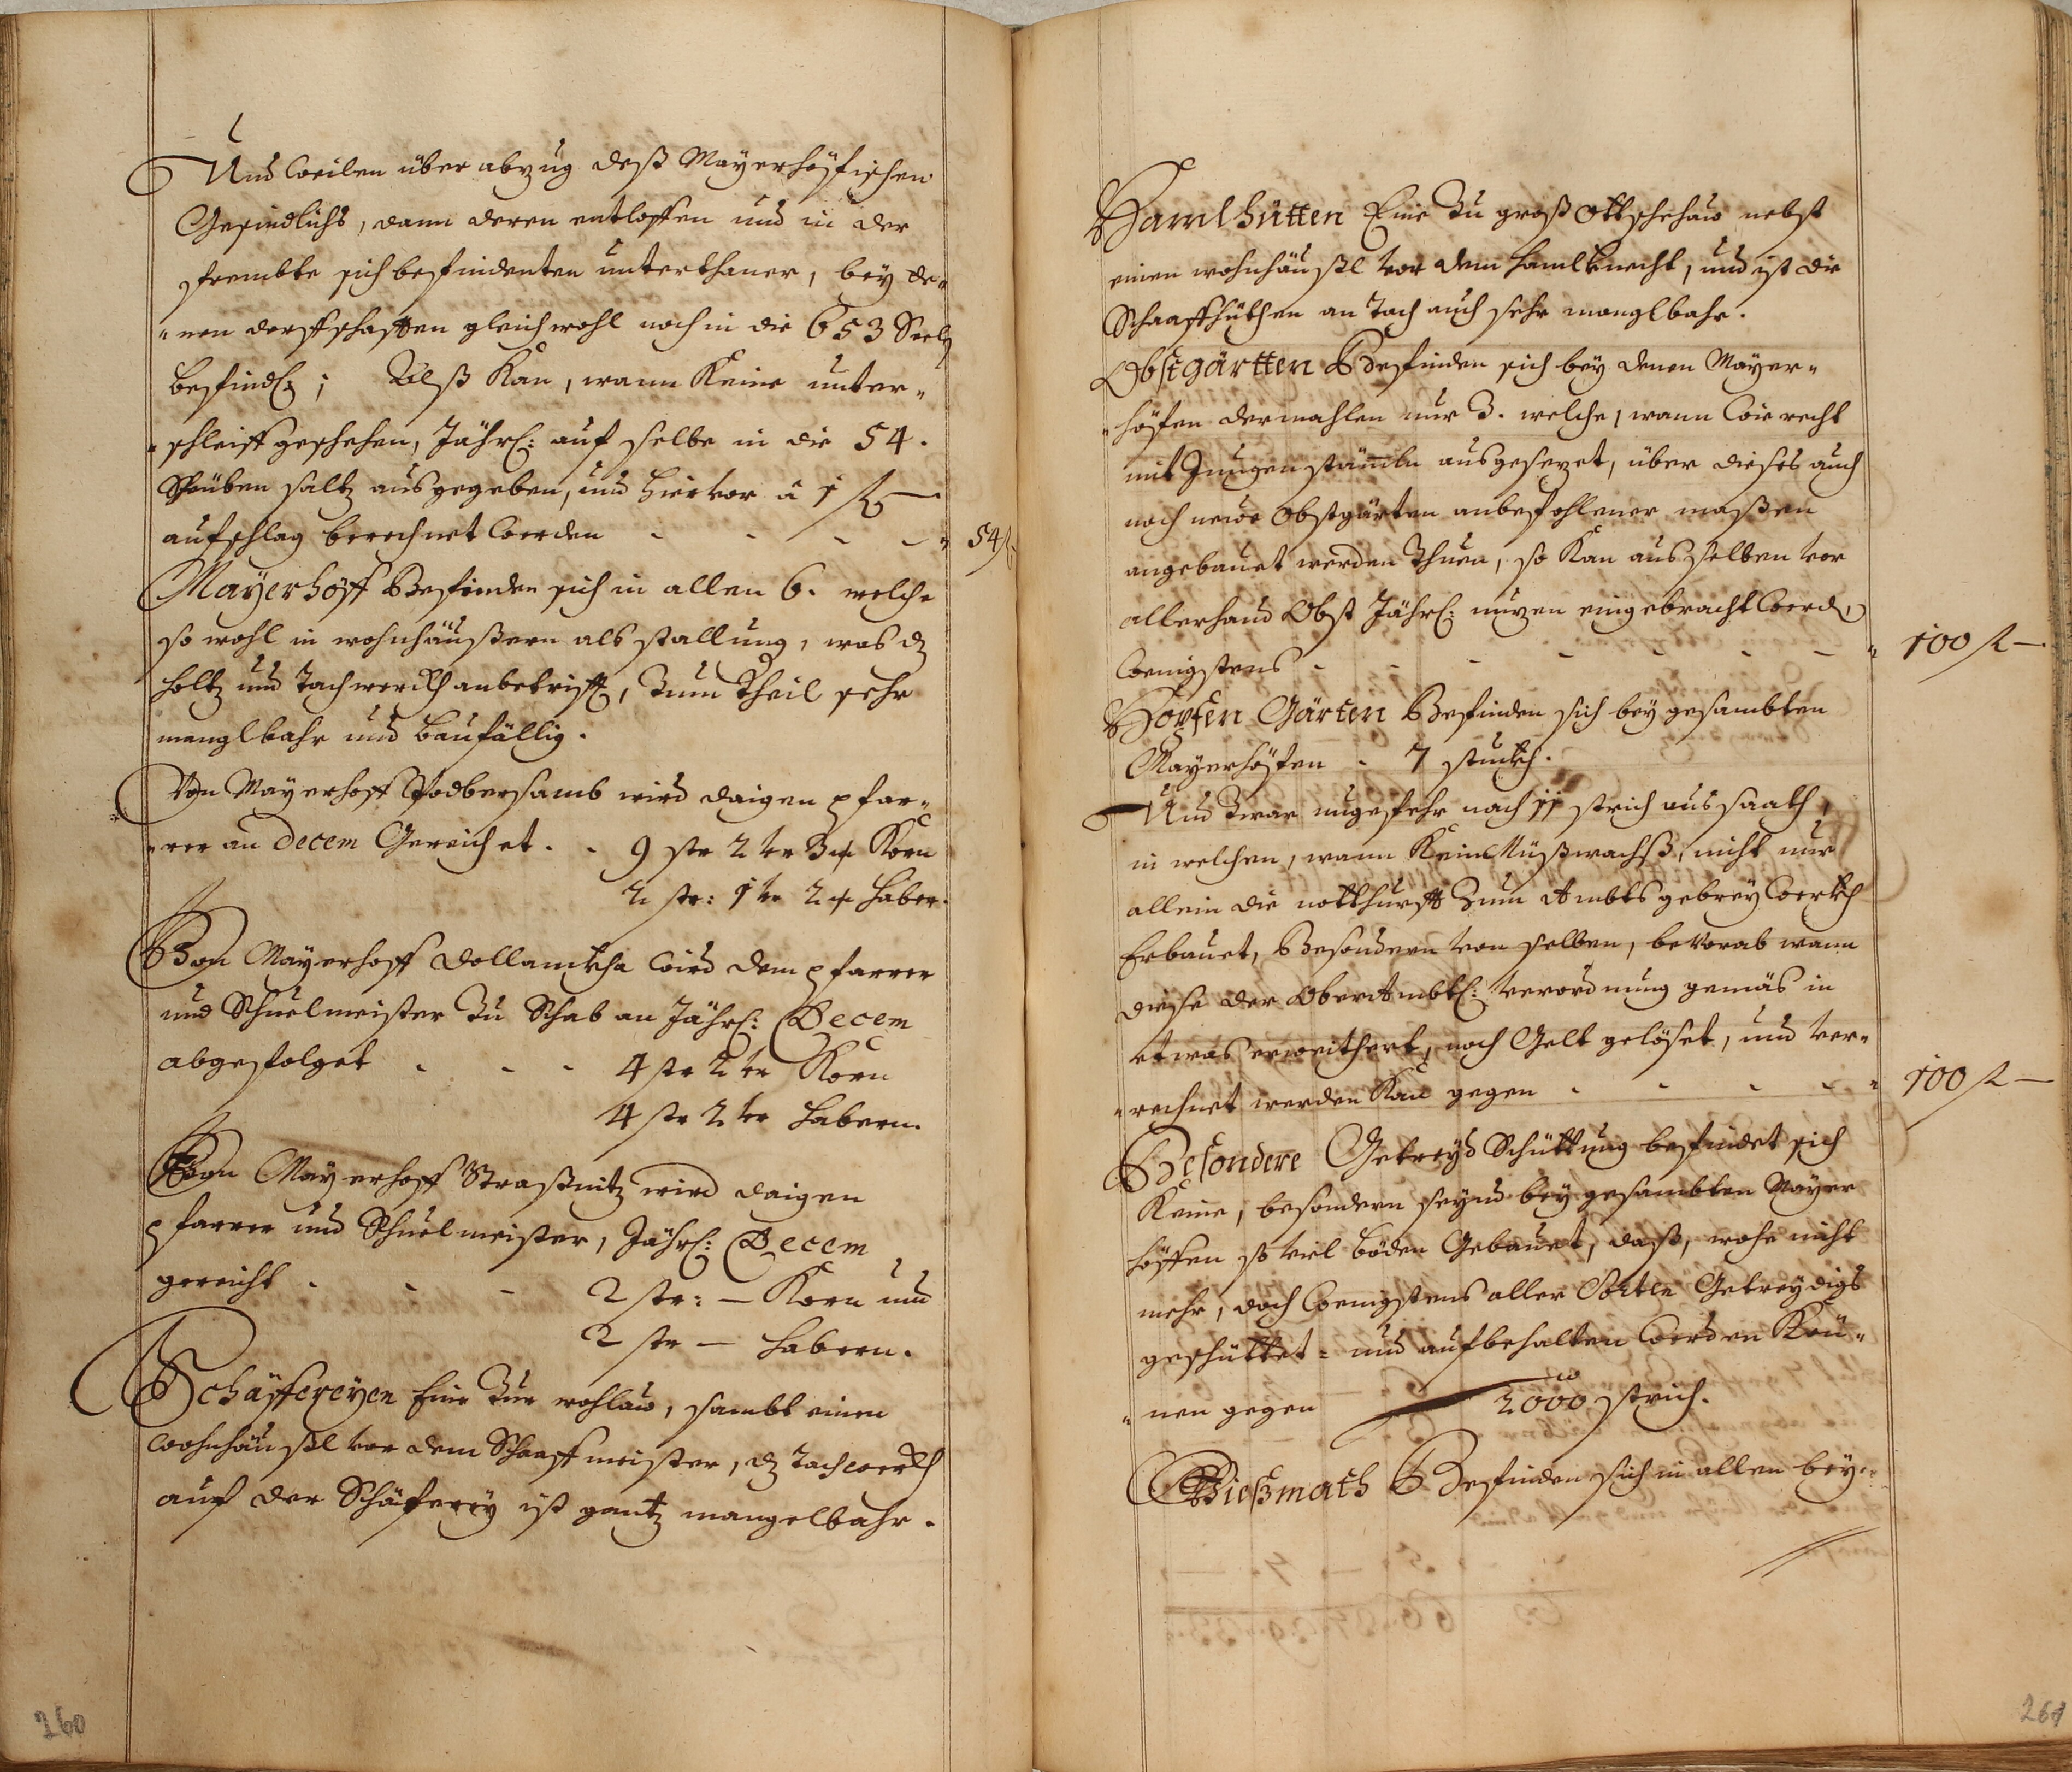 Und weilen über abzug deß Mayerhöfischen
Gesindlichs, dann deren entloffen und in der
frembte sich befindenten unterthaner, bey de-
-nen dorfschafften gleichwohl noch in die 653 Seeln
befindl: ; Alß Kan, wann Keine unter-
-schleiff geschehen, Jährl: auf selbe in die 54.
Küben saltz ausgegeben, und hiervor â 1 f
aufschlag berechnet werden - - - - 54 f
Mayerhöff Befinden sich in allen 6. welche
so wohl in wohnhäußern als stallung, was dz
holtz und Tachwerckh anbetrifft, Zum theil sehr
manglbahr und baufällig.
Von Mayerhoff Podbersamb wird daigen pfar-
-rer an Decem Gereichet. - 9 str 2 vr 3 Korn
2 str: 1 vr 2 haber.
Von Mayerhoff Dollantscha wird dem pfarrer
und Schuelmeister Zu Schab an Jährl: Decem
abgefolget - - - 4 str 2 vr Korn
4 str 2 vr habern.
Von Mayerhoff Straßnitz wird daigen
pfarrer und Schuelmeister, Jährl: Decem
gereicht - - - 2 str: — Korn und
2 str — habern.
Schäffereyen Eine Zue wohlau, sambt einen
wohnhäußl vor dem Schaaffmeister, dz Tachwerckh
auf der Schäferey ist gantz mangelbahr.
260
Hamlhütten Eine Zu groß Ottschehau nebst
einen wohnhäußl vor dem hamlknecht, und ist die
Schaaffhütten an Tach auch sehr manglbahr.
Obstgärtten Befinden sich bey denen Mayer-
-höfen dermahlen nur 3. welche, wann wie recht
mit Jungen stämeln ausgesezet, über dieses auch
noch newe Obstgärten anbefohlener maßen
angebauet werden Thuen, so Kan aus selben vor
allerhand Obst Jährl: nuzen eingebracht werdn,
wenigstens - - - - - - 100 f —
Hopfen Gärten Befinden sich bey gesambten
Mayerhöfen - 7 stuckh.
Und zwar ungefehr nach 11 strich aussaath,
in welchen, wann Kein Müßwachß, nicht nur
allein die notthurfft Zum Ambtsgebreywerckh
Erbauet, Besondern von selben, bevorab wann
diese der OberAmbtl: verordnung gemäs in
etwas erweithert, noch Gelt gelöset, und ver-
-rechnet werden Kan gegen - - - - 100 f —
Besondere Getreyd Schüttung befindet sich
Keine, besondern seynd bey gesambten Mayer
höffen so viel böden Gebauet, daß, wohe nicht
mehr, doch wenigstens aller Sorten Getreydigs
geschüttet- und aufbehalten werden Kön-
-nen gegen 2000 strich.
Wießmath Befinden sich in allen bey-
261